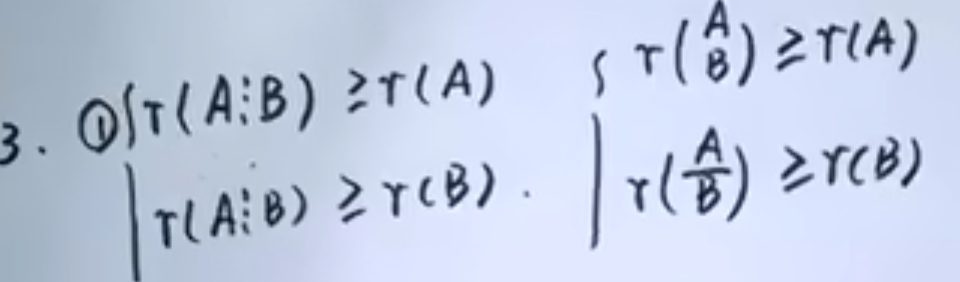 3. ① r(A⋮B) ≥ r(A)    r(A B) ≥ r(A)
r(A⋮B) ≥ r(B).    r(A/B) ≥ r(B)